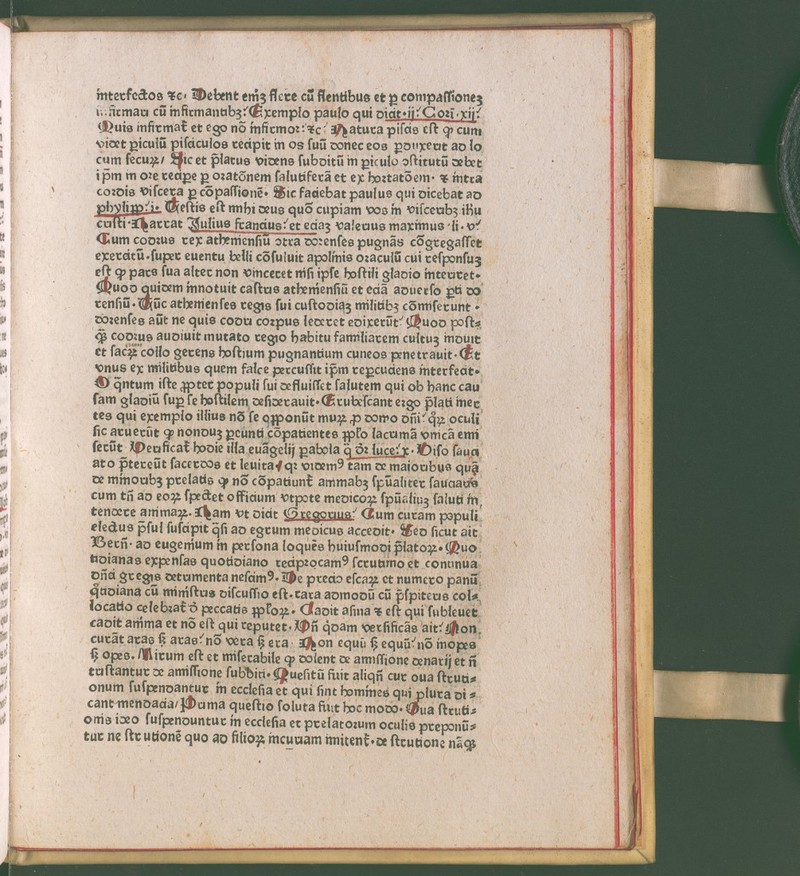 interfectos ⁊c· Debent em̄ꝫ flere cū flentibus et ꝑ compassioneꝫ
infirmari cū infirmantibꝫ: Exemplo paulo qui dicit·ij: Cori·xij:
Quis infirmat̄ et ego nō infirmor: ⁊c: Natura piscis est ꝙ cum
videt ꝑiculū pisciculos recipit in os suū donec eos ꝑduxerit ad lo
cum secuꝝ/ Sic et p̄latus videns subditū in ꝑiculo ꝯstitutū debet
ip̄m in ore recipe ꝑ oratōnem salutiferā et ex hortatōem· ⁊ intra
cordis viscera ꝑ cōpassionē· Sic faciebat paulus qui dicebat ad
phylipp̄:i· Testis est mihi deus quō cupiam vos in visceribꝫ ih̄u
cristi·Narrat Julius francius: et eciaꝫ valerius maximus·li·v:
Cum codrus rex atheniensiū ꝯtra dorenses pugnās cōgregasset
exercitū·super euentu belli cōsuluit apolinis oraculū cui responsuꝫ
est ꝙ pars sua alter non vinceret nisi ipse hostili gladio interiret·
Quod quidem innotuit castris atheniensiū et eciā aduerso ꝑti do
rensiū· Tūc athenienses regis sui custodiaꝫ militibꝫ cōmiserunt·
dorenses aūt ne quis codri corpus lederet edixerūt: Quod post⸗
ꝙ̄ codrus audiuit mutato regio habitu familiarem cultuꝫ induit
et saꝝ collo gerens hostium pugnantium cuneos penetrauit· Et
vnus ex militibus quem falce percussit ip̄m repcuciens interfecit·
O q̄ntum iste ꝓpter populi sui defluisset salutem qui ob hanc cau
sam gladiū suꝑ se hostilem desiderauit· Erubescant ergo p̄lati iner
tes qui exemplo illius nō se ꝓponūt muꝝ ꝓ domo dn̄i: qꝝ oculi
sic aruerūt ꝙ nonduꝫ ꝑeunti cōpatientes ꝓplo lacrimā vnicā emi
serūt Verificat̄ hodie illa euāgelij ꝑabola q̄ dr̄ luce: x· Viso sauci
ato p̄tereūt sacerdos et leuita/ qꝛ videmꝰ tam de maioribus quā
de minoribꝫ prelatis ꝙ nō cōpatiunt̄ animabꝫ spūaliter sauciatis
cum tn̄ ad eoꝝ spectet officium vtpote medicoꝝ spūaliuꝫ saluti in
tendere animaꝝ· Nam vt dicit Gregorius: Cum curam populi
electus p̄sul suscipit q̄si ad egrum medicus accedit· Sed sicut ait
Bern̄· ad eugenium in persona loquēs huiusmodi p̄latoꝝ· Quo
tidianas expensas quotidiano reciprocamꝰ scrutinio et continua
dn̄ici gregis detrimenta nescimꝰ· De precio escaꝝ et numero panū
q̄tidiana cū ministris discussio est·rara admodū cū p̄spiteris col⸗
locatio celebrat̄ d̄ peccatis ꝓploꝝ· Cadit asina ⁊ est qui subleuet
cadit anima et nō est qui reputet· Vn̄ q̄dam versificās ait: Non
curāt aras sꝫ aras: nō vera sꝫ era· Non equū sꝫ equū: nō inopes
sꝫ opes· Mirum est et miserabile ꝙ dolent de amissione denarij et n̄
tristantur de amissione subditi· Quesitū fuit aliqn̄ cur oua struti⸗
onum suspendantur in ecclesia et qui sint homines qui plura di⸗
cant mendacia/ Prima questio soluta fuit hoc modo· Oua struti⸗
onis ideo suspenduntur in ecclesia et prelatorum oculis preponū⸗
tur ne strutionē quo ad filioꝝ incuriam imitent̄·de strutione nāꝙ